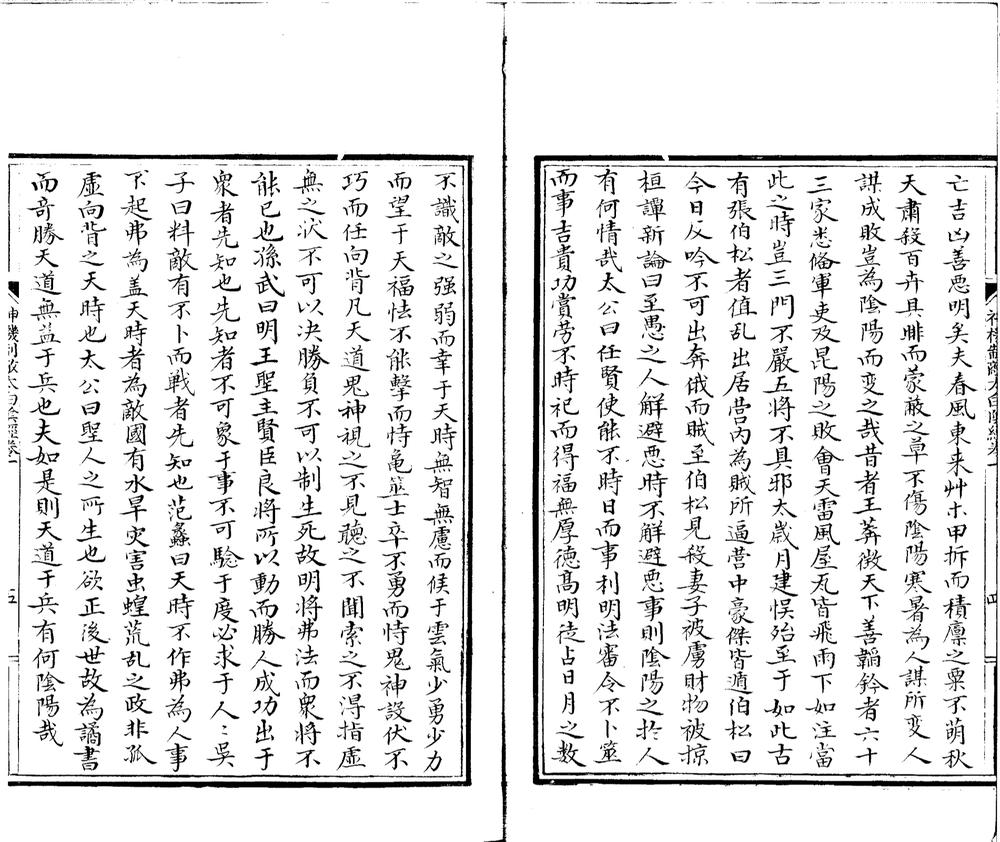 亡吉凶善惡明矣夫春風東来艸木甲拆而積廪之粟不萌秋
天肅殺百卉具腓而蒙蔽之草不傷陰陽寒暑為人謀所变人
謀成敗豈為陰陽而变之哉昔者王莽徵天下善韜鈐者六十
三家悉俻軍吏及昆陽之敗會天雷風屋瓦皆飛雨下如注當
此之時豈三門不嚴五将不具邪太歲月建悮殆至于如此古
有張伯松者值乱出居营内為賊所逼营中豪傑皆遁伯松曰
今日反吟不可出奔俄而賊至伯松見殺妻子被虜財物被掠
桓譚新論曰至愚之人解避惡時不解避惡事則陰陽之扵人
有何情哉太公曰任賢使能不時日而事利明法審令不卜筮
而事吉貴功賞勞不時祀而得福無厚德髙明徒占日月之数
神機制敵太白陰經卷一
四
不識敵之强弱而幸于天時無智無慮而候于雲氣少勇少力
而望于天福怯不能擊而恃龜筮士卒不勇而恃鬼神設伏不
巧而任向背凡天道鬼神視之不見聽之不聞索之不淂指虚
無之状不可以决勝負不可以制生死故明将弗法而衆将不
能已也孫武曰明王聖主賢臣良将所以動而勝人成功出于
衆者先知也先知者不可象于事不可驗于度必求于人〻吴
子曰料敵有不卜而戰者先知也范蠡曰天時不作弗為人事
不起弗為盖天時者為敵國有水旱灾害虫蝗荒乱之政非孤
虚向背之天時也太公曰聖人之所生也欲正後世故為譎書
而奇勝天道無益于兵也夫如是則天道于兵有何陰陽哉
神機制敵太白陰經卷一
五